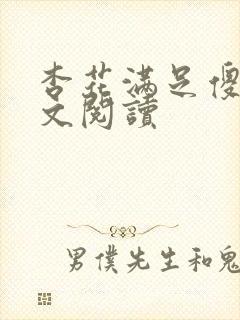 杏花满足傻
文閱讀
男僕先生和鬼